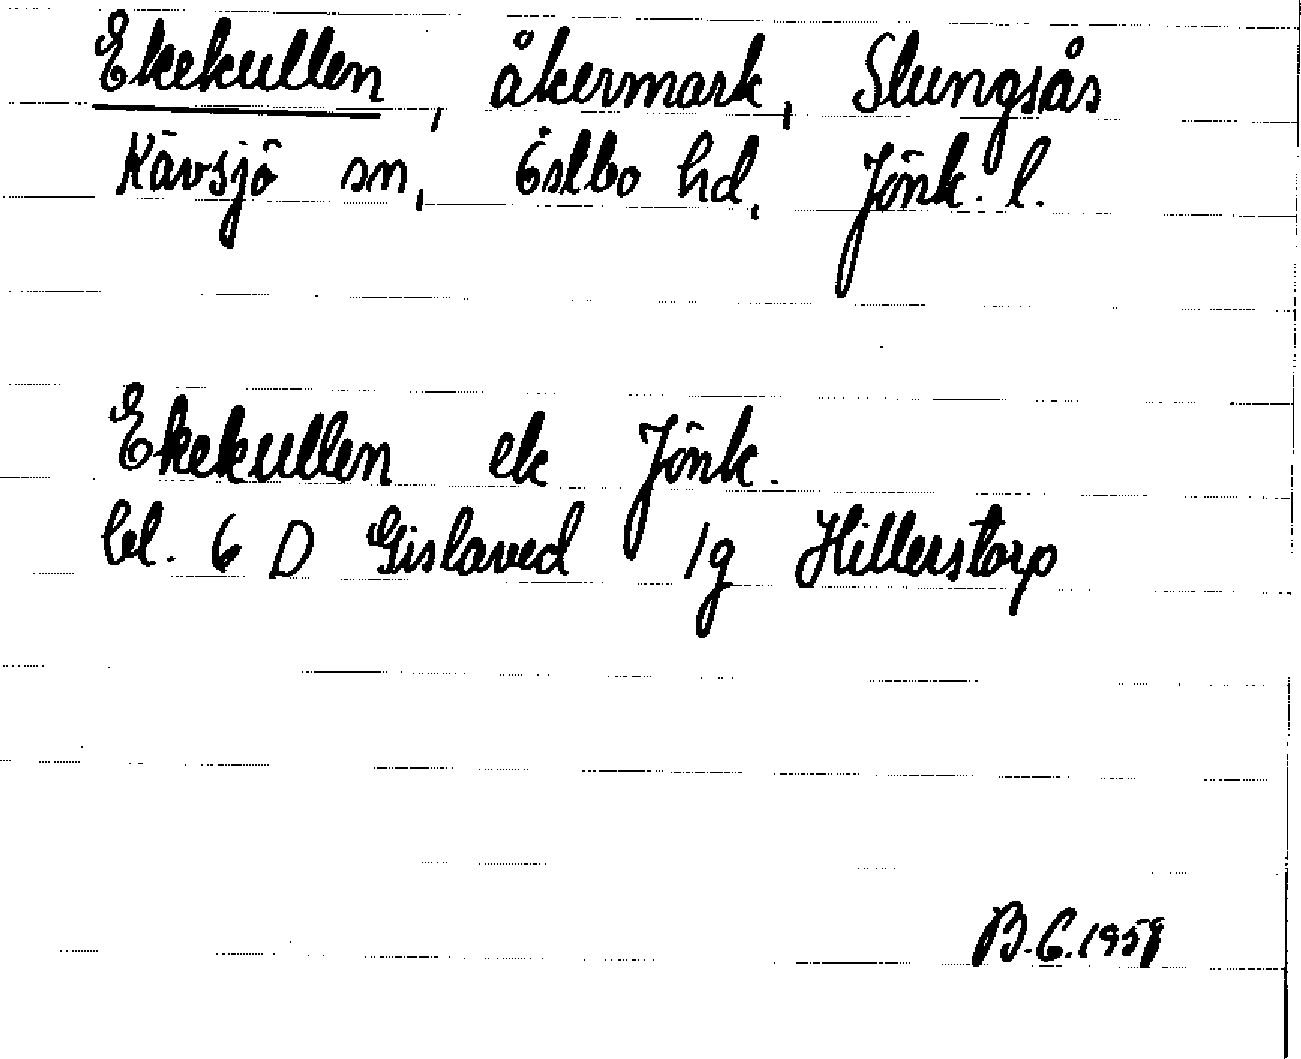 Ekekullen, åkermark, Slungsås
Kävsjö sn, Östbo hd, Jönk. l.
Ekekullen ek Jönk.
bl. 6 D Gislaved 1g Hillerstorp
B.G. 1959